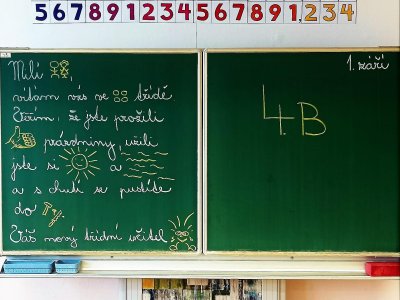 567891234567891,234
Milí
vítám vás ve třídě.
Věřím, že jste prožili
prázdniny, užili
jste si a
a s chutí se pustíte
do
Váš nový třídní učitel
1. září
4.B